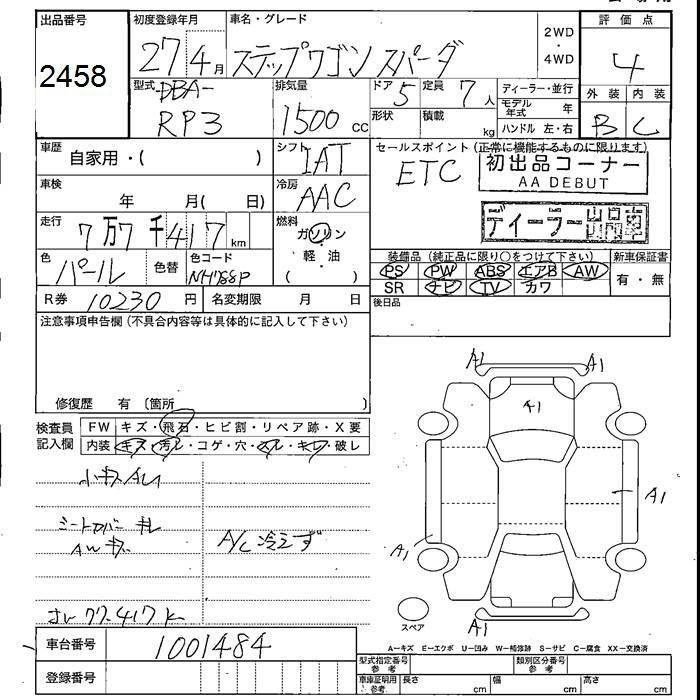 出品番号
2458
初度登録年月
27 4月
車名・グレード
ステップワゴン スパーダ
2WD
・
4WD
評価点
4
外装 内装
B C
型式
DBA-
RP3
排気量
1500 cc
ドア 5
定員 7人
形状
積載 kg
ディーラー・並行
モデル年式 年
ハンドル 左・右
車歴
自家用・( )
シフト
IAT
セールスポイント (正常に機能するものに限ります)
ETC
初出品コーナー
AA DEBUT
ディーラー出品車
車検
年 月( 日)
冷房
AAC
走行
7万7千417km
燃料
ガソリン
・
軽・油
( )
色
パール
色替
色コード
NH788P
装備品(純正品に限り○をつけて下さい)
PS PW ABS エアB AW
SR ナビ TV カワ
新車保証書
有・無
R券 10230円
名変期限 月 日
後日品
注意事項申告欄(不具合内容等は具体的に記入して下さい)
修復歴 有 〔箇所 〕
検査員
記入欄
FW キズ・飛石・ヒビ割・リペア跡・X要
内装 キズ・汚レ・コゲ・穴・スレ・キレ・破レ
A1 A1
A1
A1
A1
A1
小キズ
シートカバー
AWキズ
A/C冷えず
77.417K
スペア
A−キズ E−エクボ U−凹み W−補修跡 S−サビ C−腐食 XX−交換済
車台番号
1001484
登録番号
型式指定番号
参考
類別区分番号
参考
車庫証明用
参考
長さ cm
幅 cm
高さ cm